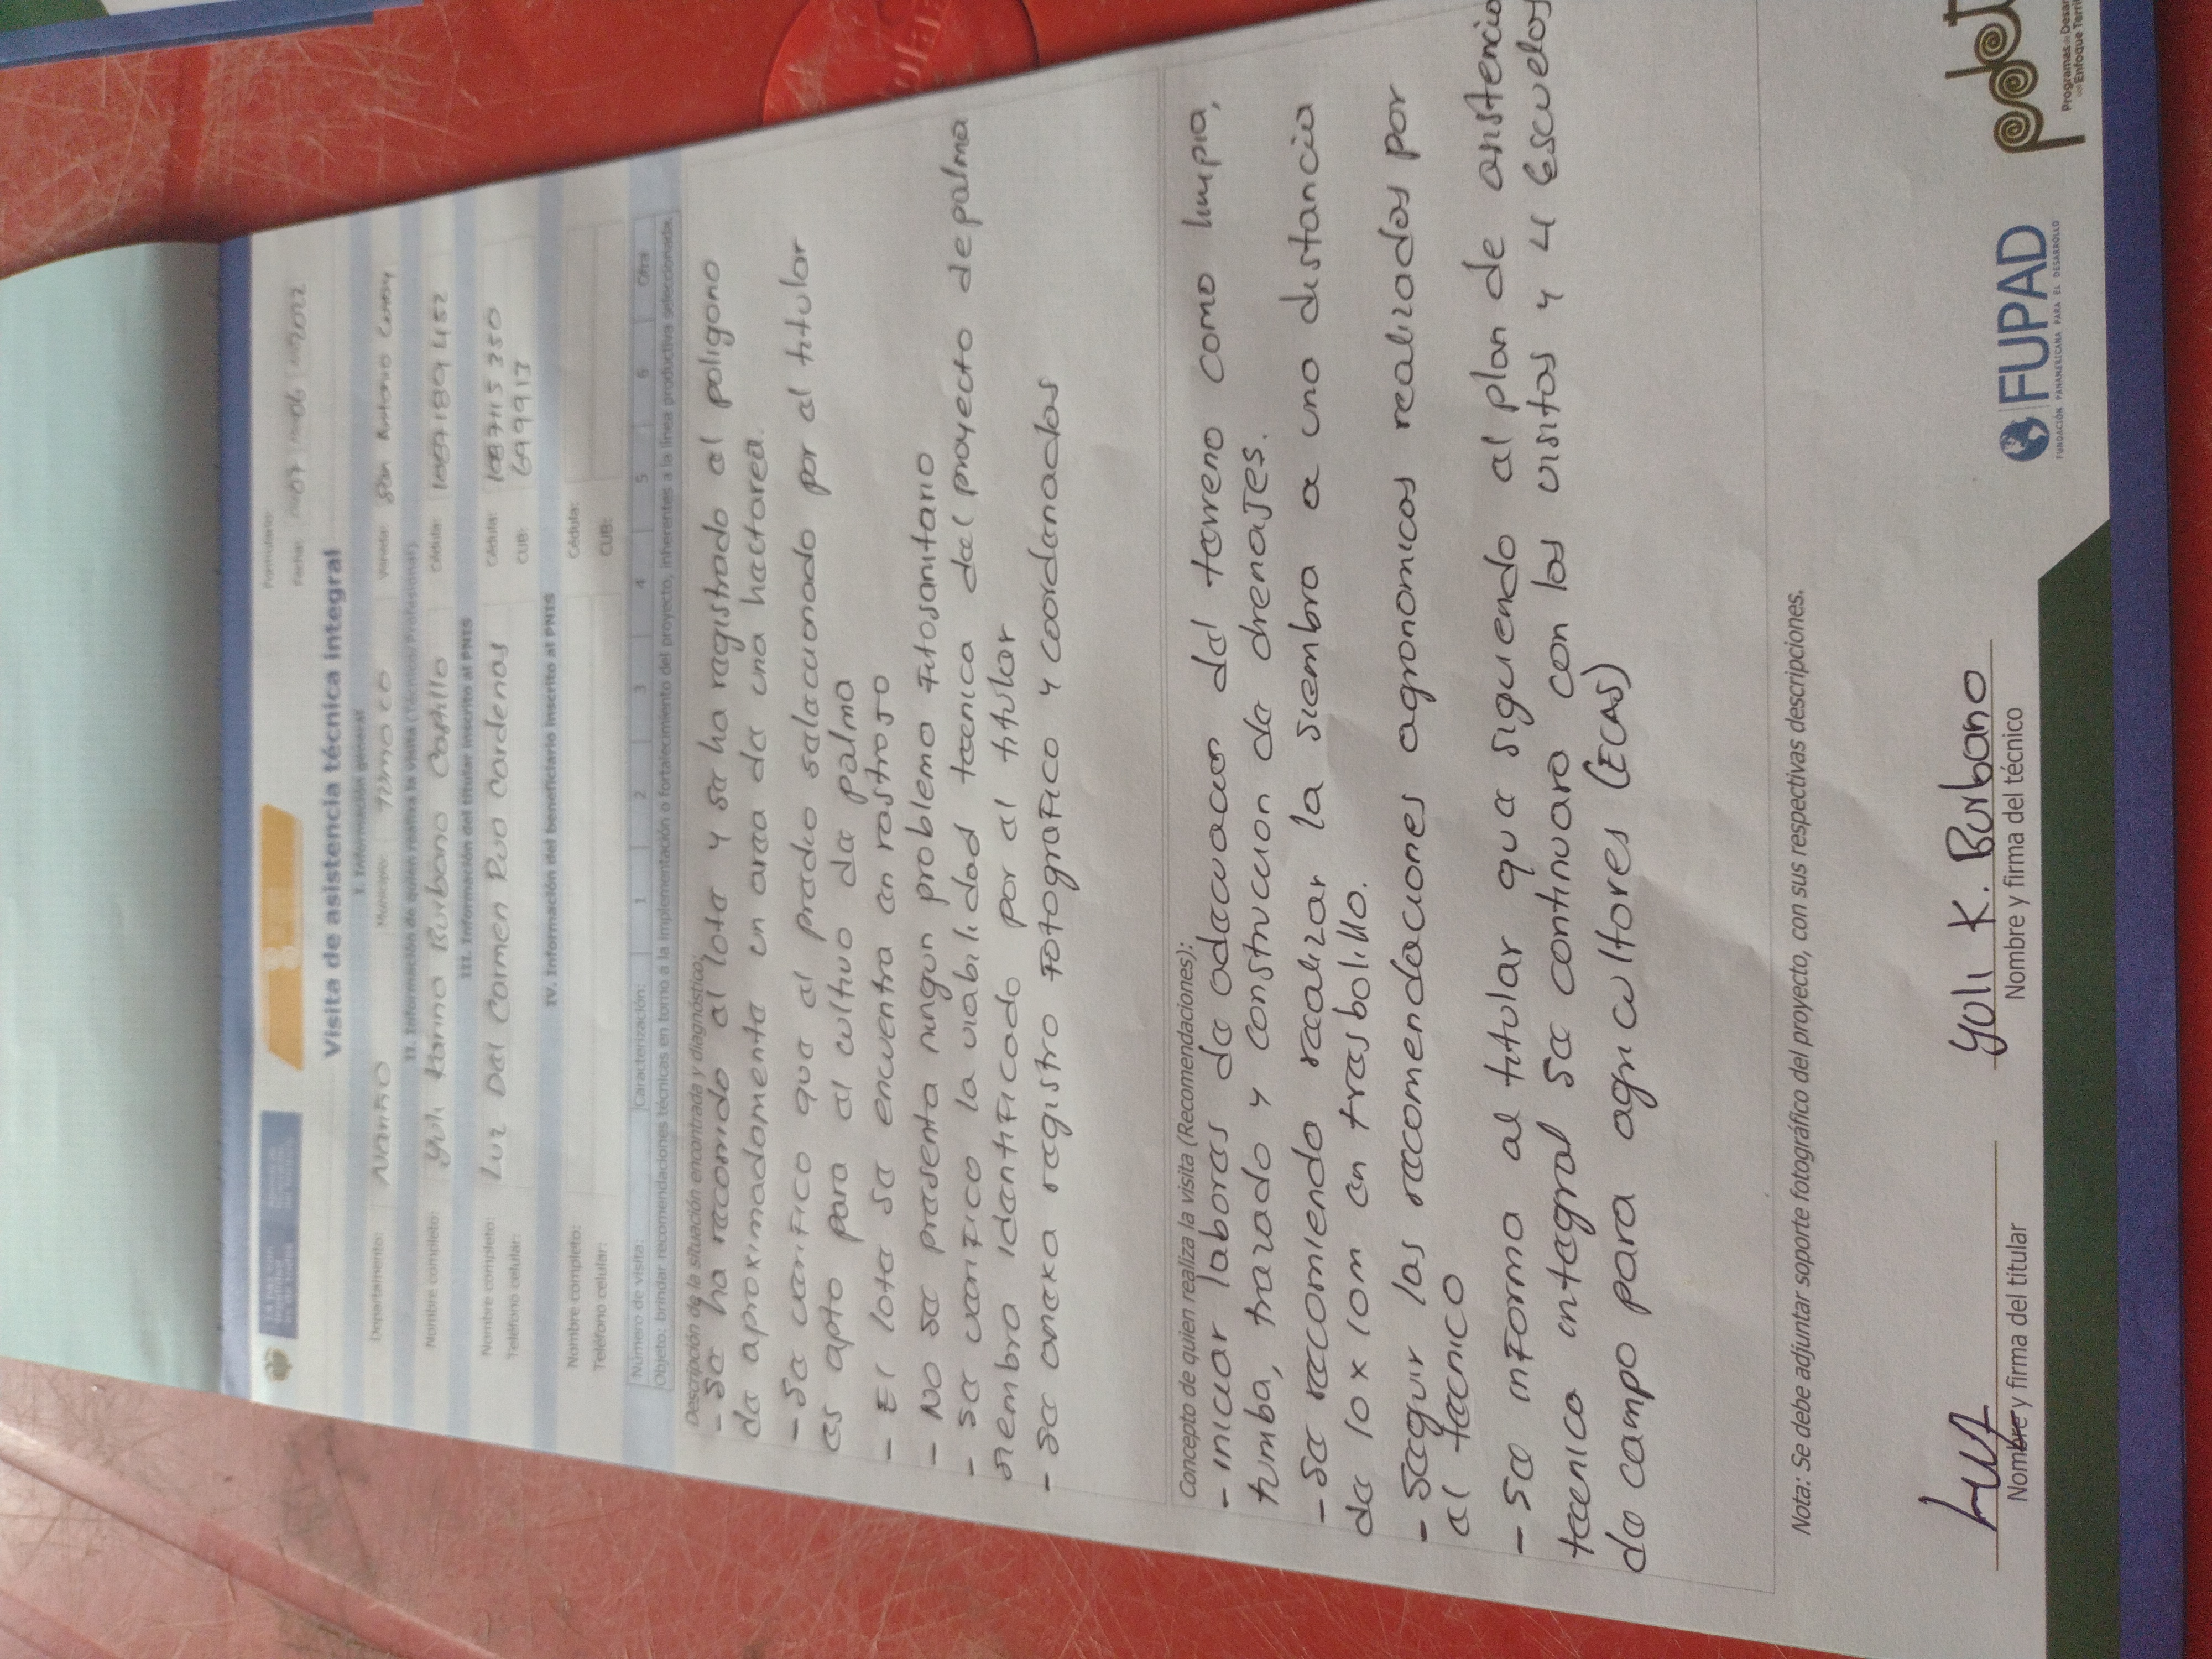 Formulario:
Fecha: 07 06 2022
Visita de asistencia técnica integral
I. Información general
Departamento: Nariño Municipio: Tumaco Vereda: San Antonio
II. Información de quien realiza la visita (Técnico/Profesional)
Nombre completo: Yuli Karina Burbano Castillo Cédula: 1087189452
III. Información del titular inscrito al PNIS
Nombre completo: Luz Del Carmen Rua Cardenas Cédula: 1087115350
Teléfono celular: CUB: 699913
IV. Información del beneficiario inscrito al PNIS
Nombre completo: Cédula:
Teléfono celular: CUB:
Número de visita: Caracterización: 1 2 3 4 5 6 Otra
Objeto: brindar recomendaciones técnicas en torno a la implementación o fortalecimiento del proyecto, inherentes a la línea productiva seleccionada.
Descripción de la situación encontrada y diagnóstico:
- Se ha recorrido el lote y se ha registrado el poligono
de aproximadamente un area de una hectarea.
- Se verifico que el predio selaccionado por el titular
es apto para el cultivo de palma
- El lote se encuentra en rastrojo
- No se presenta ningun problema fitosanitario
- se verifico la viabilidad tecnica del proyecto de palma
siembra identificado por el titular
- se anexa registro fotografico y coordenadas
Concepto de quien realiza la visita (Recomendaciones):
- iniciar labores de adecuacion del terreno como limpia,
tumba, trazado y construccion de drenajes.
- Se recomienda realizar la siembra a una distancia
de 10 x 10m en trasbolillo.
- Seguir las recomendaciones agronomicas realizadas por
el tecnico
- se informa al titular que siguiendo el plan de asistencia
tecnica integral se continuara con las visitas y 4 Escuelas
de campo para agricultores (ECAS)
Nota: Se debe adjuntar soporte fotográfico del proyecto, con sus respectivas descripciones.
Luz
Yuli K. Burbano
Nombre y firma del titular
Nombre y firma del técnico
FUPAD
FUNDACIÓN PANAMERICANA PARA EL DESARROLLO
pdet